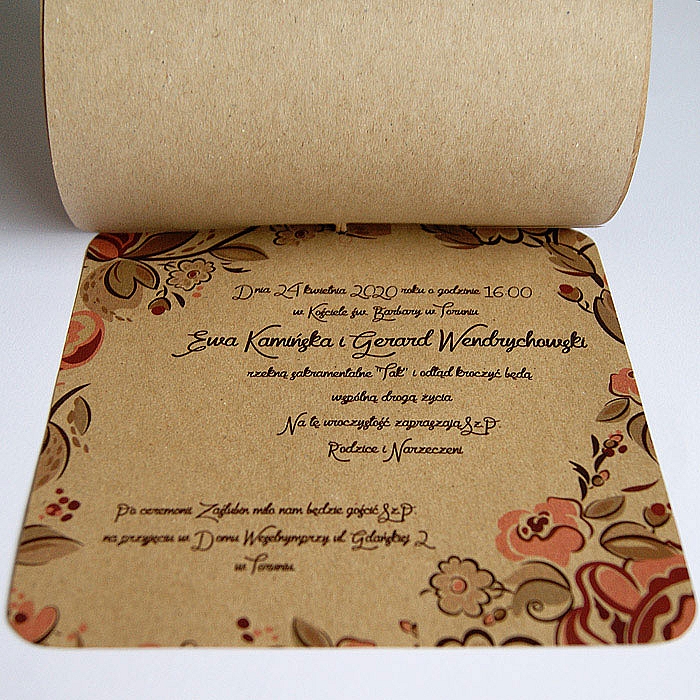 Dnia 24 kwietnia 2020 roku o godzinie 16:00
w Kościele św. Barbary w Toruniu
Ewa Kamińska i Gerard Wendrychowski
rzekną sakramentalne "Tak" i odtąd kroczyć będą
wspólną drogą życia
Na tę uroczystość zapraszają Sz.P.
Rodzice i Narzeczeni
Po ceremonii Zaślubin miło nam będzie gościć Sz.P.
na przyjęciu w Domu Weselnymprzy ul. Gdańskiej 2
w Toruniu.